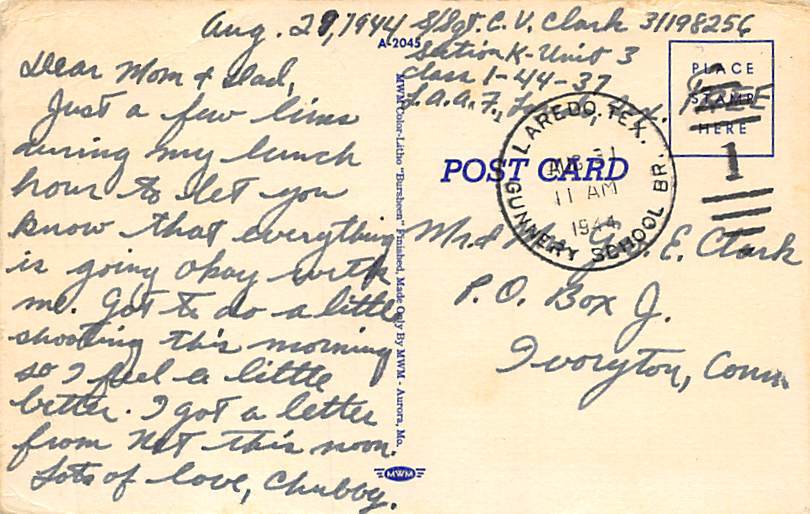 Aug. 29, 1944
Dear Mom & Dad,
Just a few lines
during my lunch
hour to let you
know that everything
is going okay with
me. Got to do a little
shooting this morning
so I feel a little
better. I got a letter
from Nat this noon.
Lots of love, Chubby.
A-2045
MWM Color-Litho "Bursheen" Finished, Made Only By MWM - Aurora, Mo.
MWM
S/Sgt. C. V. Clark 31198256
Section K-Unit 3
Class 1-44-37
L.A.A.F., Tex. FREE
PLACE
STAMP
HERE
1
POST CARD
LAREDO, TEX.
AUG 31
11 AM
1944
GUNNERY SCHOOL BR.
Mr. & Mrs. E. Clark
P.O. Box J.
Ivoryton, Conn.